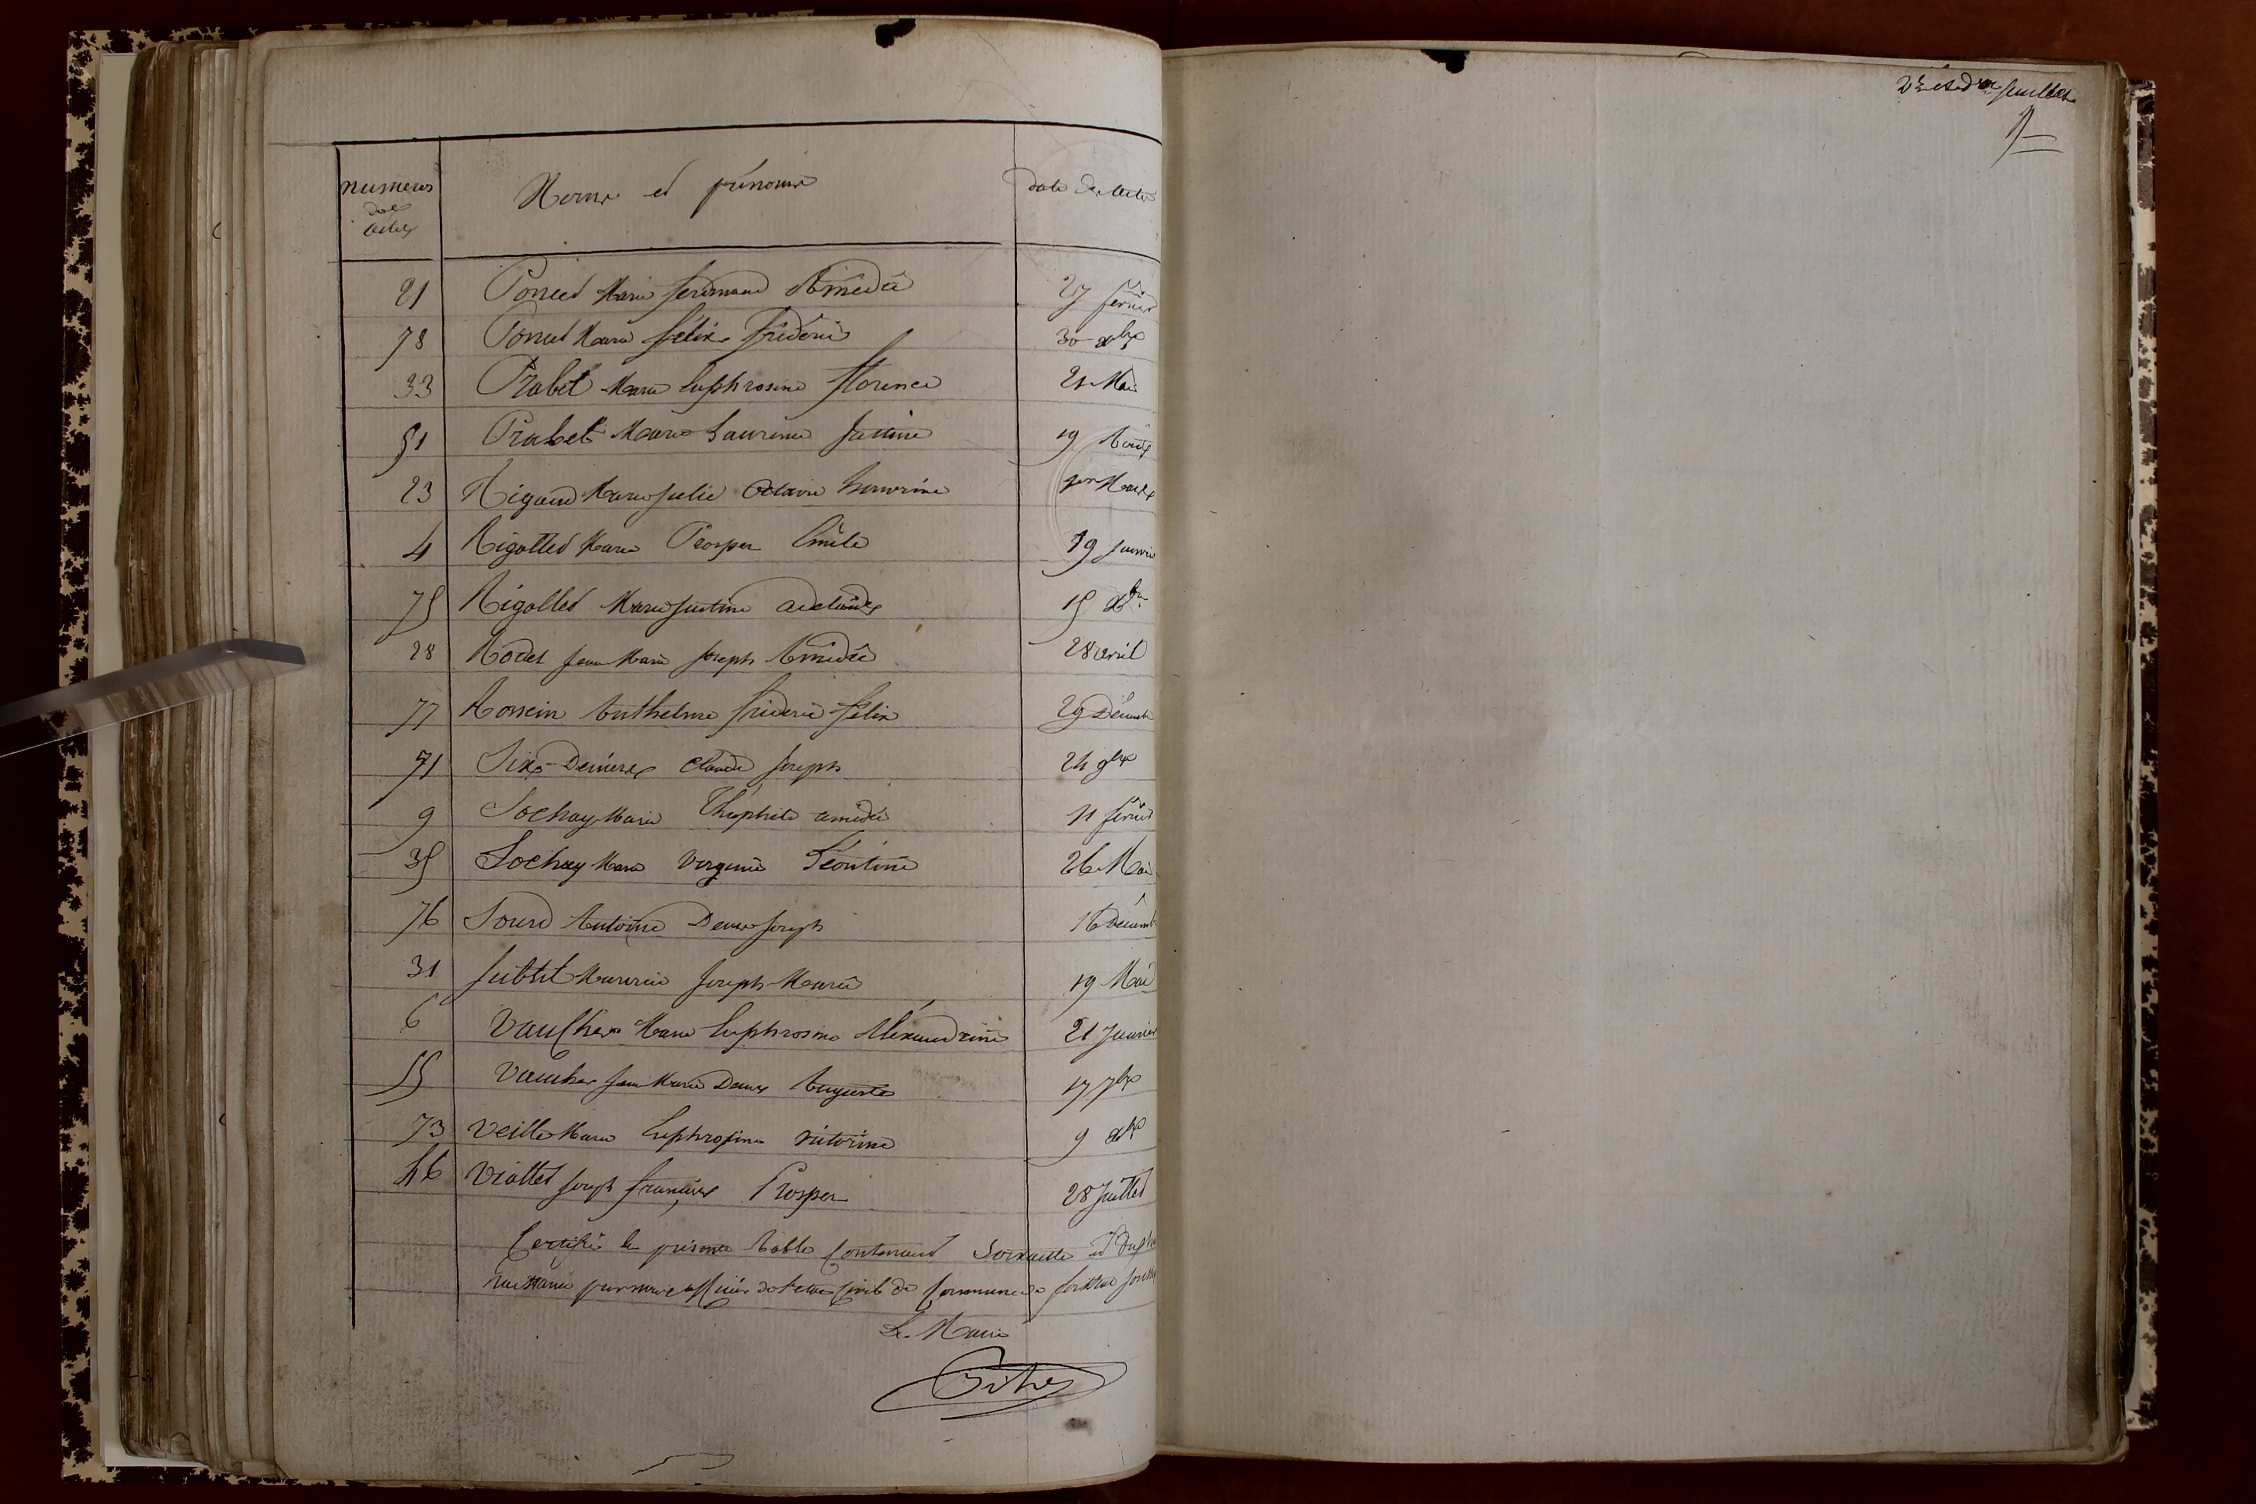 22e et dre feuillet
numeros des actes
Noms et prénoms
date des actes
21 Poncet Marie ferdinand Amédée 27 février
78 Poncet Marie félix fréderic 30 xbre
33 Prabet Marie Euphrosine florence 21 Mai
51 Prabet Marie Laurence justine 19 Août
23 Rigaud Marie julie Octavie 1er Mars
4 Rigollet Marie Prosper Emile 19 janvier
75 Rigollet Marie justine adelaïde 15 xbre
28 Rodet jean Marie joseph Amédée 28 avril
77 Rossein Anthelme fréderic félix 29 Décembre
71 Six-Deniers Claude joseph 24 9bre
9 Sochay Marie Théophile amédée 11 février
35 Sochay Marie Virginie Léontine 26 Mai
76 Sourd Antoine Denis joseph 16 Décemb
31 Subtil joseph Marie 19 Mai
6 Vaucher Marie Euphrosine Alexandrine 21 Janvier
55 Vaucher jean Marie Denis Auguste 17 7bre
73 Veille Marie Euphrosine victorine 9 xbre
46 Viollet joseph françois Prosper 28 Juillet
Certifié la présente table contenant Soixante et
naissance par officier de l'état civil de commune de
Le Maire